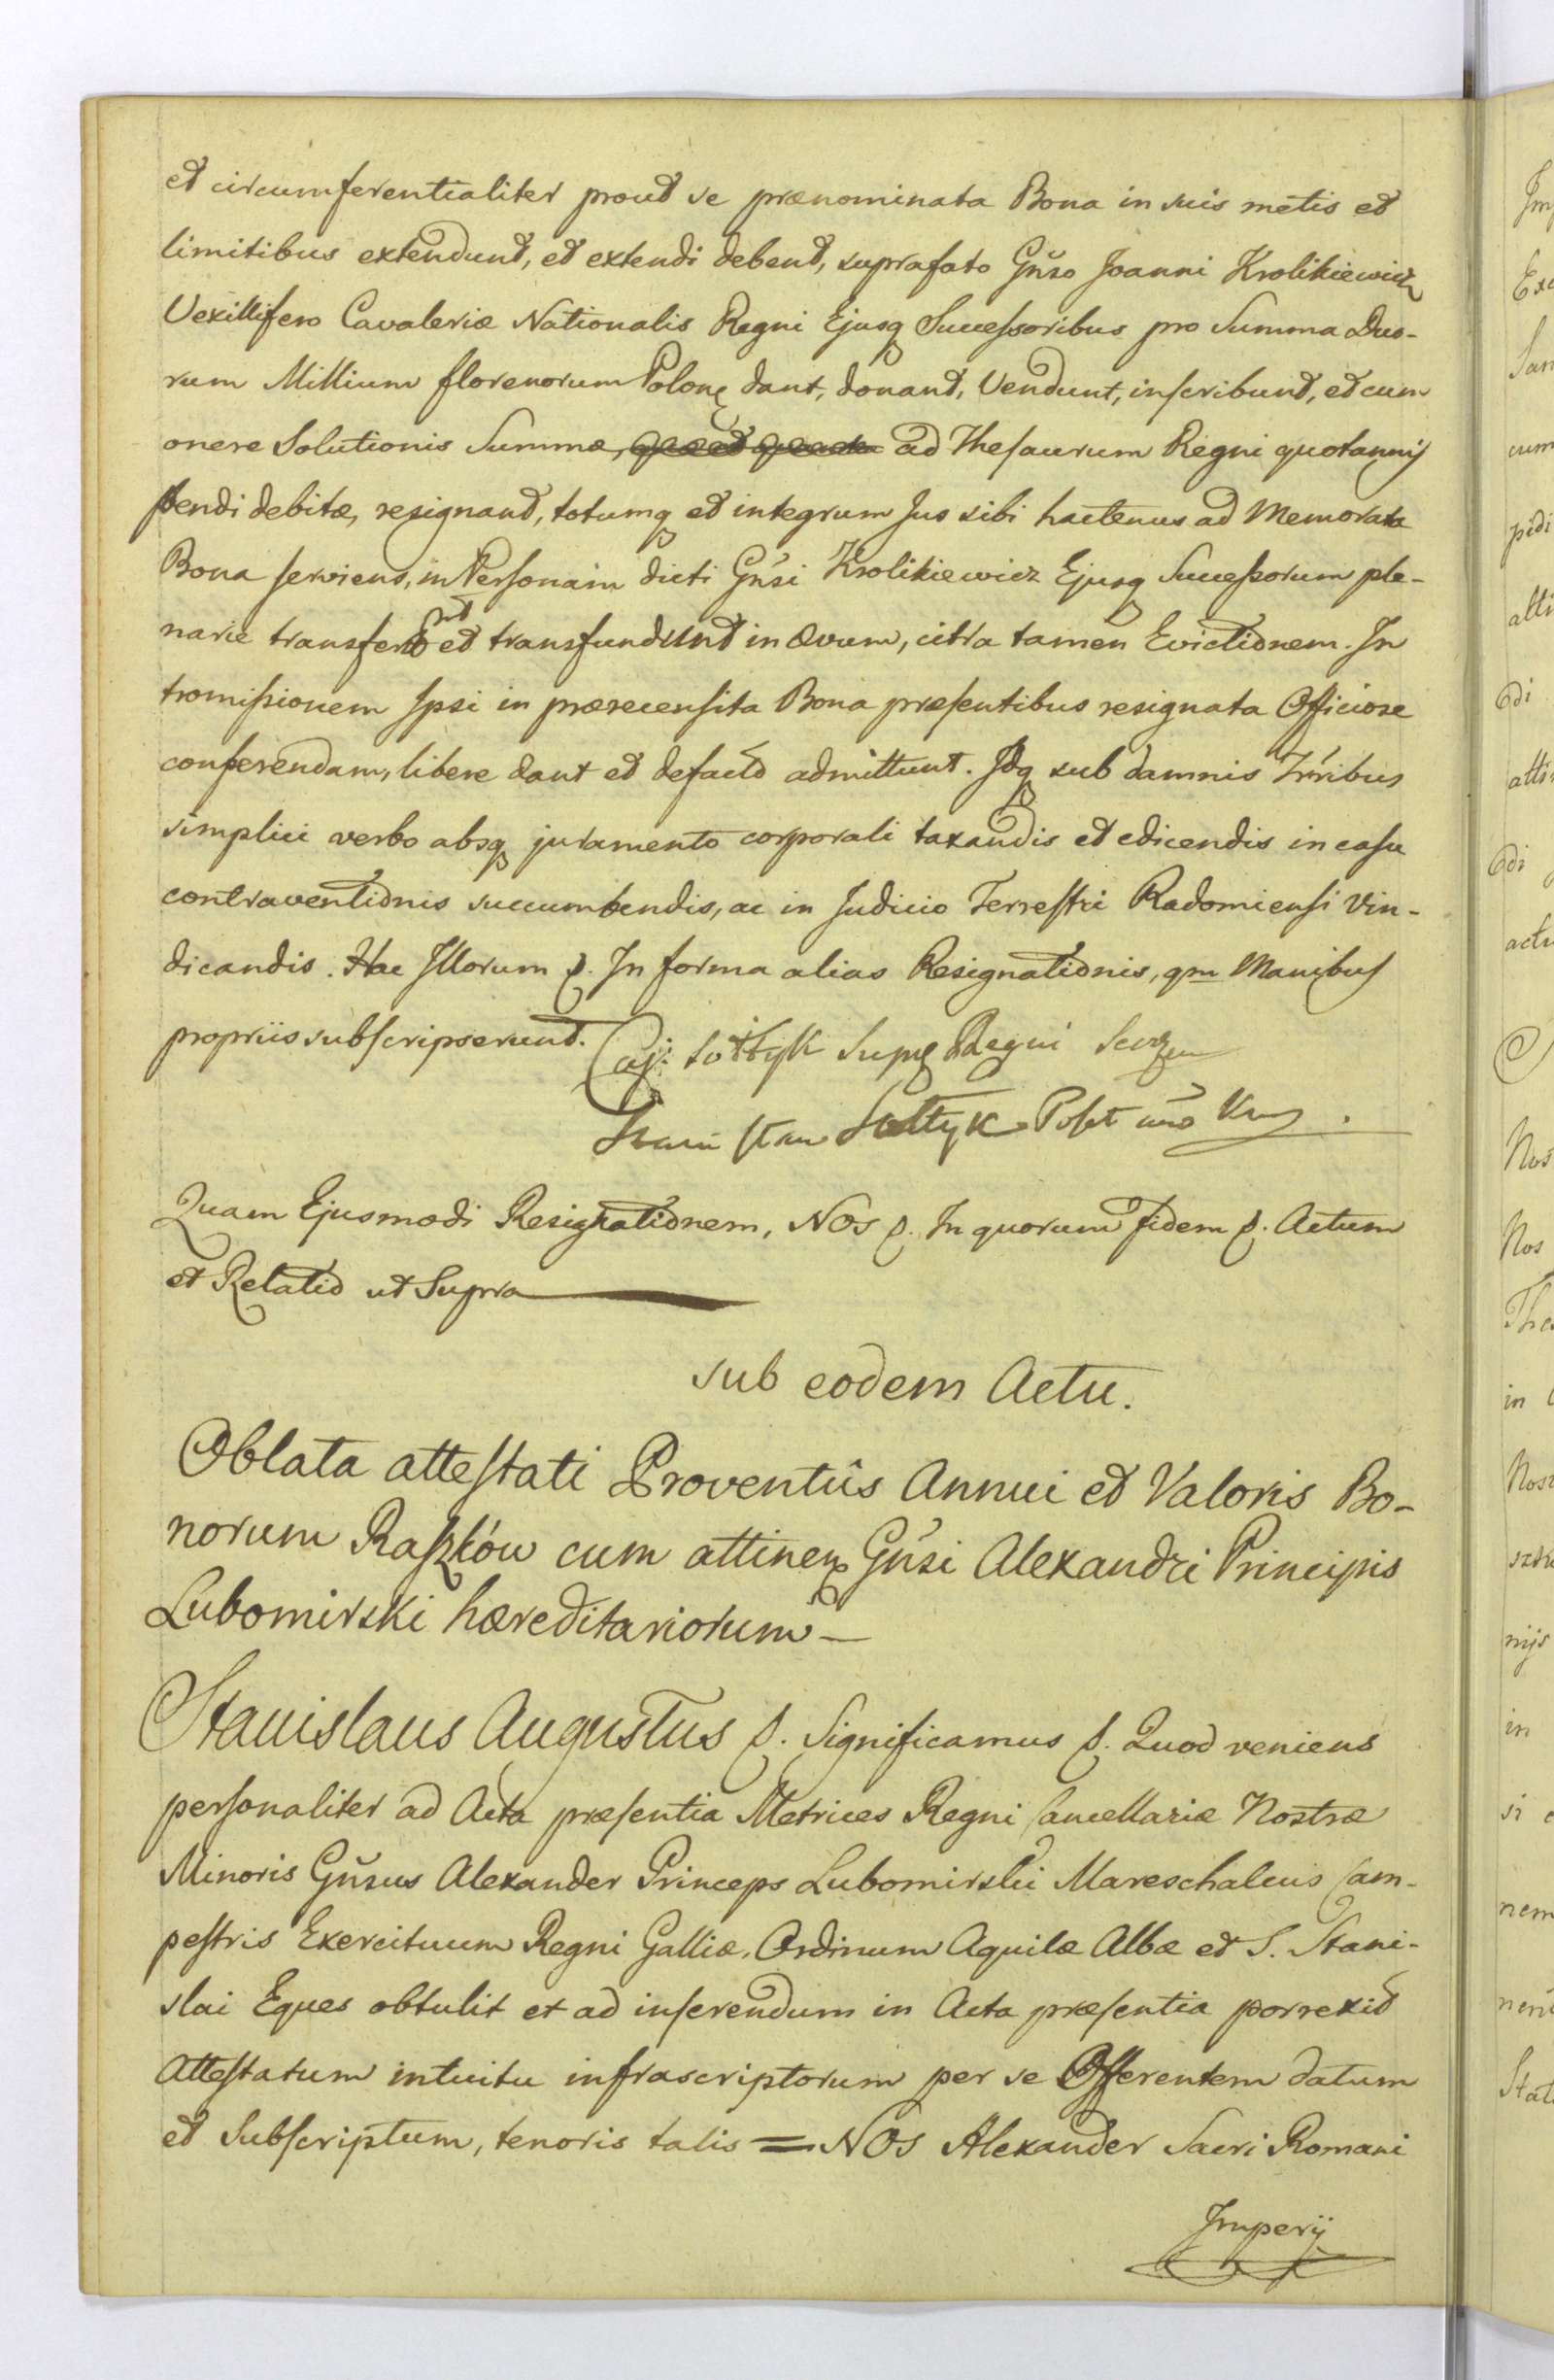 et circumferentialiter prout se prænominata Bona in suis metis et
limitibus extendunt, et extendi debent, suprafato Gñso Joanni Krolikiewicz
Vexillifero Cavaleriæ Nationalis Regni Ejusq Successoribus pro Summa Duo-
rum Millium florenorum Polon dant, donant, Vendunt, inscribunt, et cum
onere Solutionis Summæ, ad Thesaurum Regni quotannis
pendi debitæ, resignant, totumq et integrum Jus sibi hactenus ad Memorata
Bona serviens, in Personam dicti Gñsi Krolikiewicz Ejusq Successorum ple-
narie transferunt et transfundunt in ævum, citra tamen Evictionem. In
tromissionem Ipsi in præcensita Bona præsentibus resignata Officiose
conferendam, libere dant et defacto admittunt. Idq sub damnis Trribus
simplici verbo absq juramento corporali taxandis et edicendis in casu
contraventionis succumbendis, ac in Judicio Terrestri Radomiensi Vin-
dicandis. Hac Illorum p. In forma alias Resignationis, qm Manibus
propriis subscripserunt. Caj: Sołtyk Regni
Stan Sołtyk
Quam Ejusmodi Resignationem, NOS p. In quorum fidem p. Actum
et Relatio ut Supra
sub eodem Actu.
Oblata attestati Proventûs Annui et Valoris Bo-
norum Raszków cum attinen Gñsi Alexandri Principis
Lubomirski hæreditariorum
Stanislaus Augustus p. Significamus p. Quod veniens
personaliter ad Acta præsentia Metrices Regni Cancellariæ Nostræ
Minoris Gñsus Alexander Princeps Lubomirski Mareschalcus Cam-
pestris Exercituum Regni Galliæ, Ordinum Aquilæ Albæ et S. Stani-
slai Eques obtulit et ad inserendum in Acta præsentia porrexit
Attestatum intuitu infrascriptorum per se Offerentem datum
et Subscriptum, tenoris talis = NOS Alexander Sacri Romani
Imperij